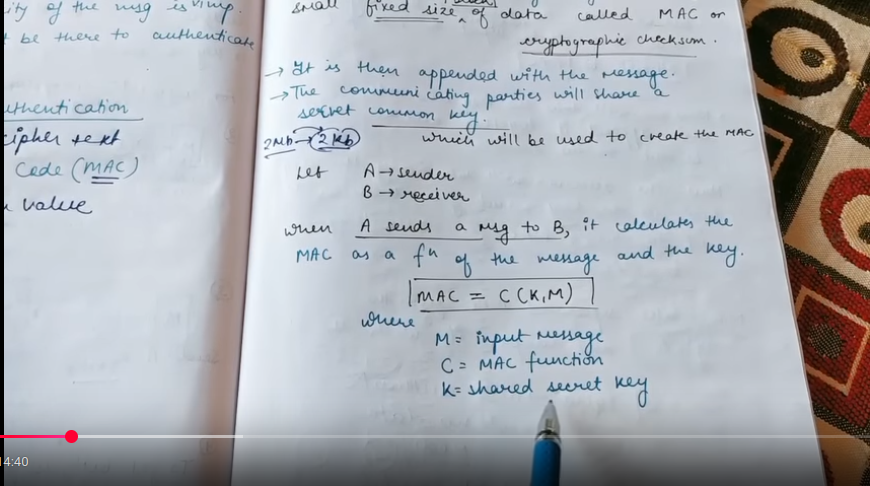 ity of the msg is v.imp.
t be there to authenticate
uthentication
cipher text
Code (MAC)
value
small fixed size of data called MAC or
cryptographic checksum.
→ It is then appended with the message.
→ The communicating parties will share a
secret common key.
2Mb → 2Kb which will be used to create the MAC
Let A → sender
B → receiver
when A sends a msg to B, it calculates the
MAC as a fⁿ of the message and the key.
MAC = C(K,M)
where
M = input message
C = MAC function
K = shared secret key
4:40